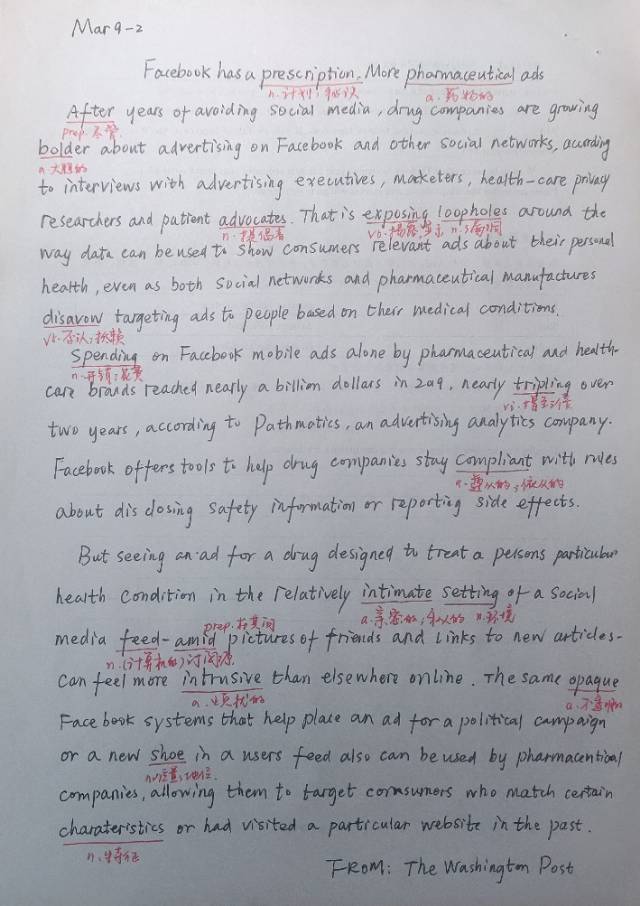 Mar 9-2
Facebook has a prescription. More pharmaceutical ads
n. 计划;秘诀 a. 药物的
After years of avoiding social media, drug companies are growing
prep. 尽管
bolder about advertising on Facebook and other social networks, according
a. 大胆的
to interviews with advertising executives, marketers, health-care privacy
researchers and patient advocates. That is exposing loopholes around the
n. 提倡者 vt. n. 漏洞
way data can be used to show consumers relevant ads about their personal
health, even as both social networks and pharmaceutical manufactures
disavow targeting ads to people based on their medical conditions.
vt. 否认;抵赖
Spending on Facebook mobile ads alone by pharmaceutical and health-
n. 开销;花费
care brands reached nearly a billion dollars in 2019, nearly tripling over
vi. 增至三倍
two years, according to Pathmatics, an advertising analytics company.
Facebook offers tools to help drug companies stay compliant with rules
a. 遵从的;依从的
about disclosing safety information or reporting side effects.
But seeing an ad for a drug designed to treat a persons particular
health condition in the relatively intimate setting of a social
a. 亲密的;私人的 n. 环境
prep. 在其间
media feed-amid pictures of friends and links to new articles-
n. (计算机的)订阅源
can feel more intrusive than elsewhere online. The same opaque
a. 烦扰的 a. 不透明的
Facebook systems that help place an ad for a political campaign
or a new shoe in a users feed also can be used by pharmaceutical
n. 位置;地位.
companies, allowing them to target comsumers who match certain
charateristics or had visited a particular website in the past.
n. 特征
FROM: The Washington Post